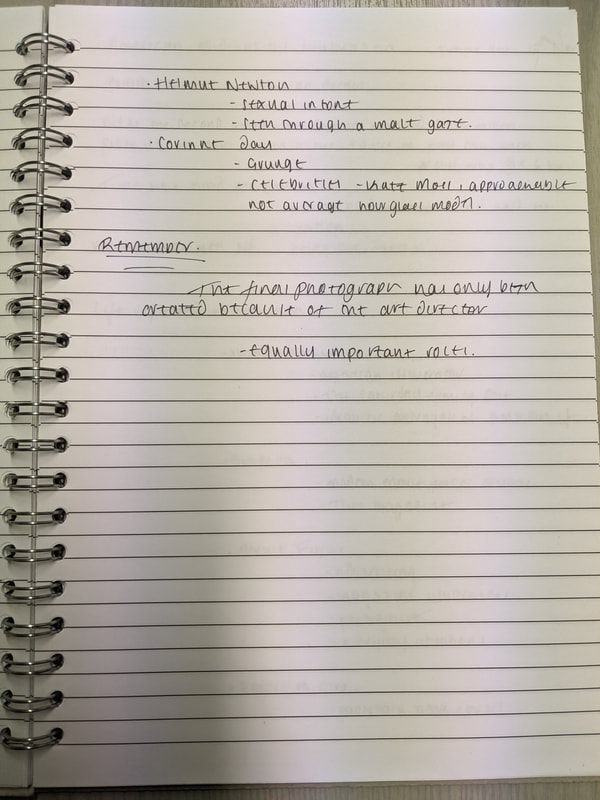 · Helmut Newton
- sexual intent
- seen through a male gaze.
· Corinne Day
- Grunge
- celebrities - Kate Moss, approachable
not average hourglass model.
Remember.
The final photograph has only been
created because of the art director
- equally important roles.